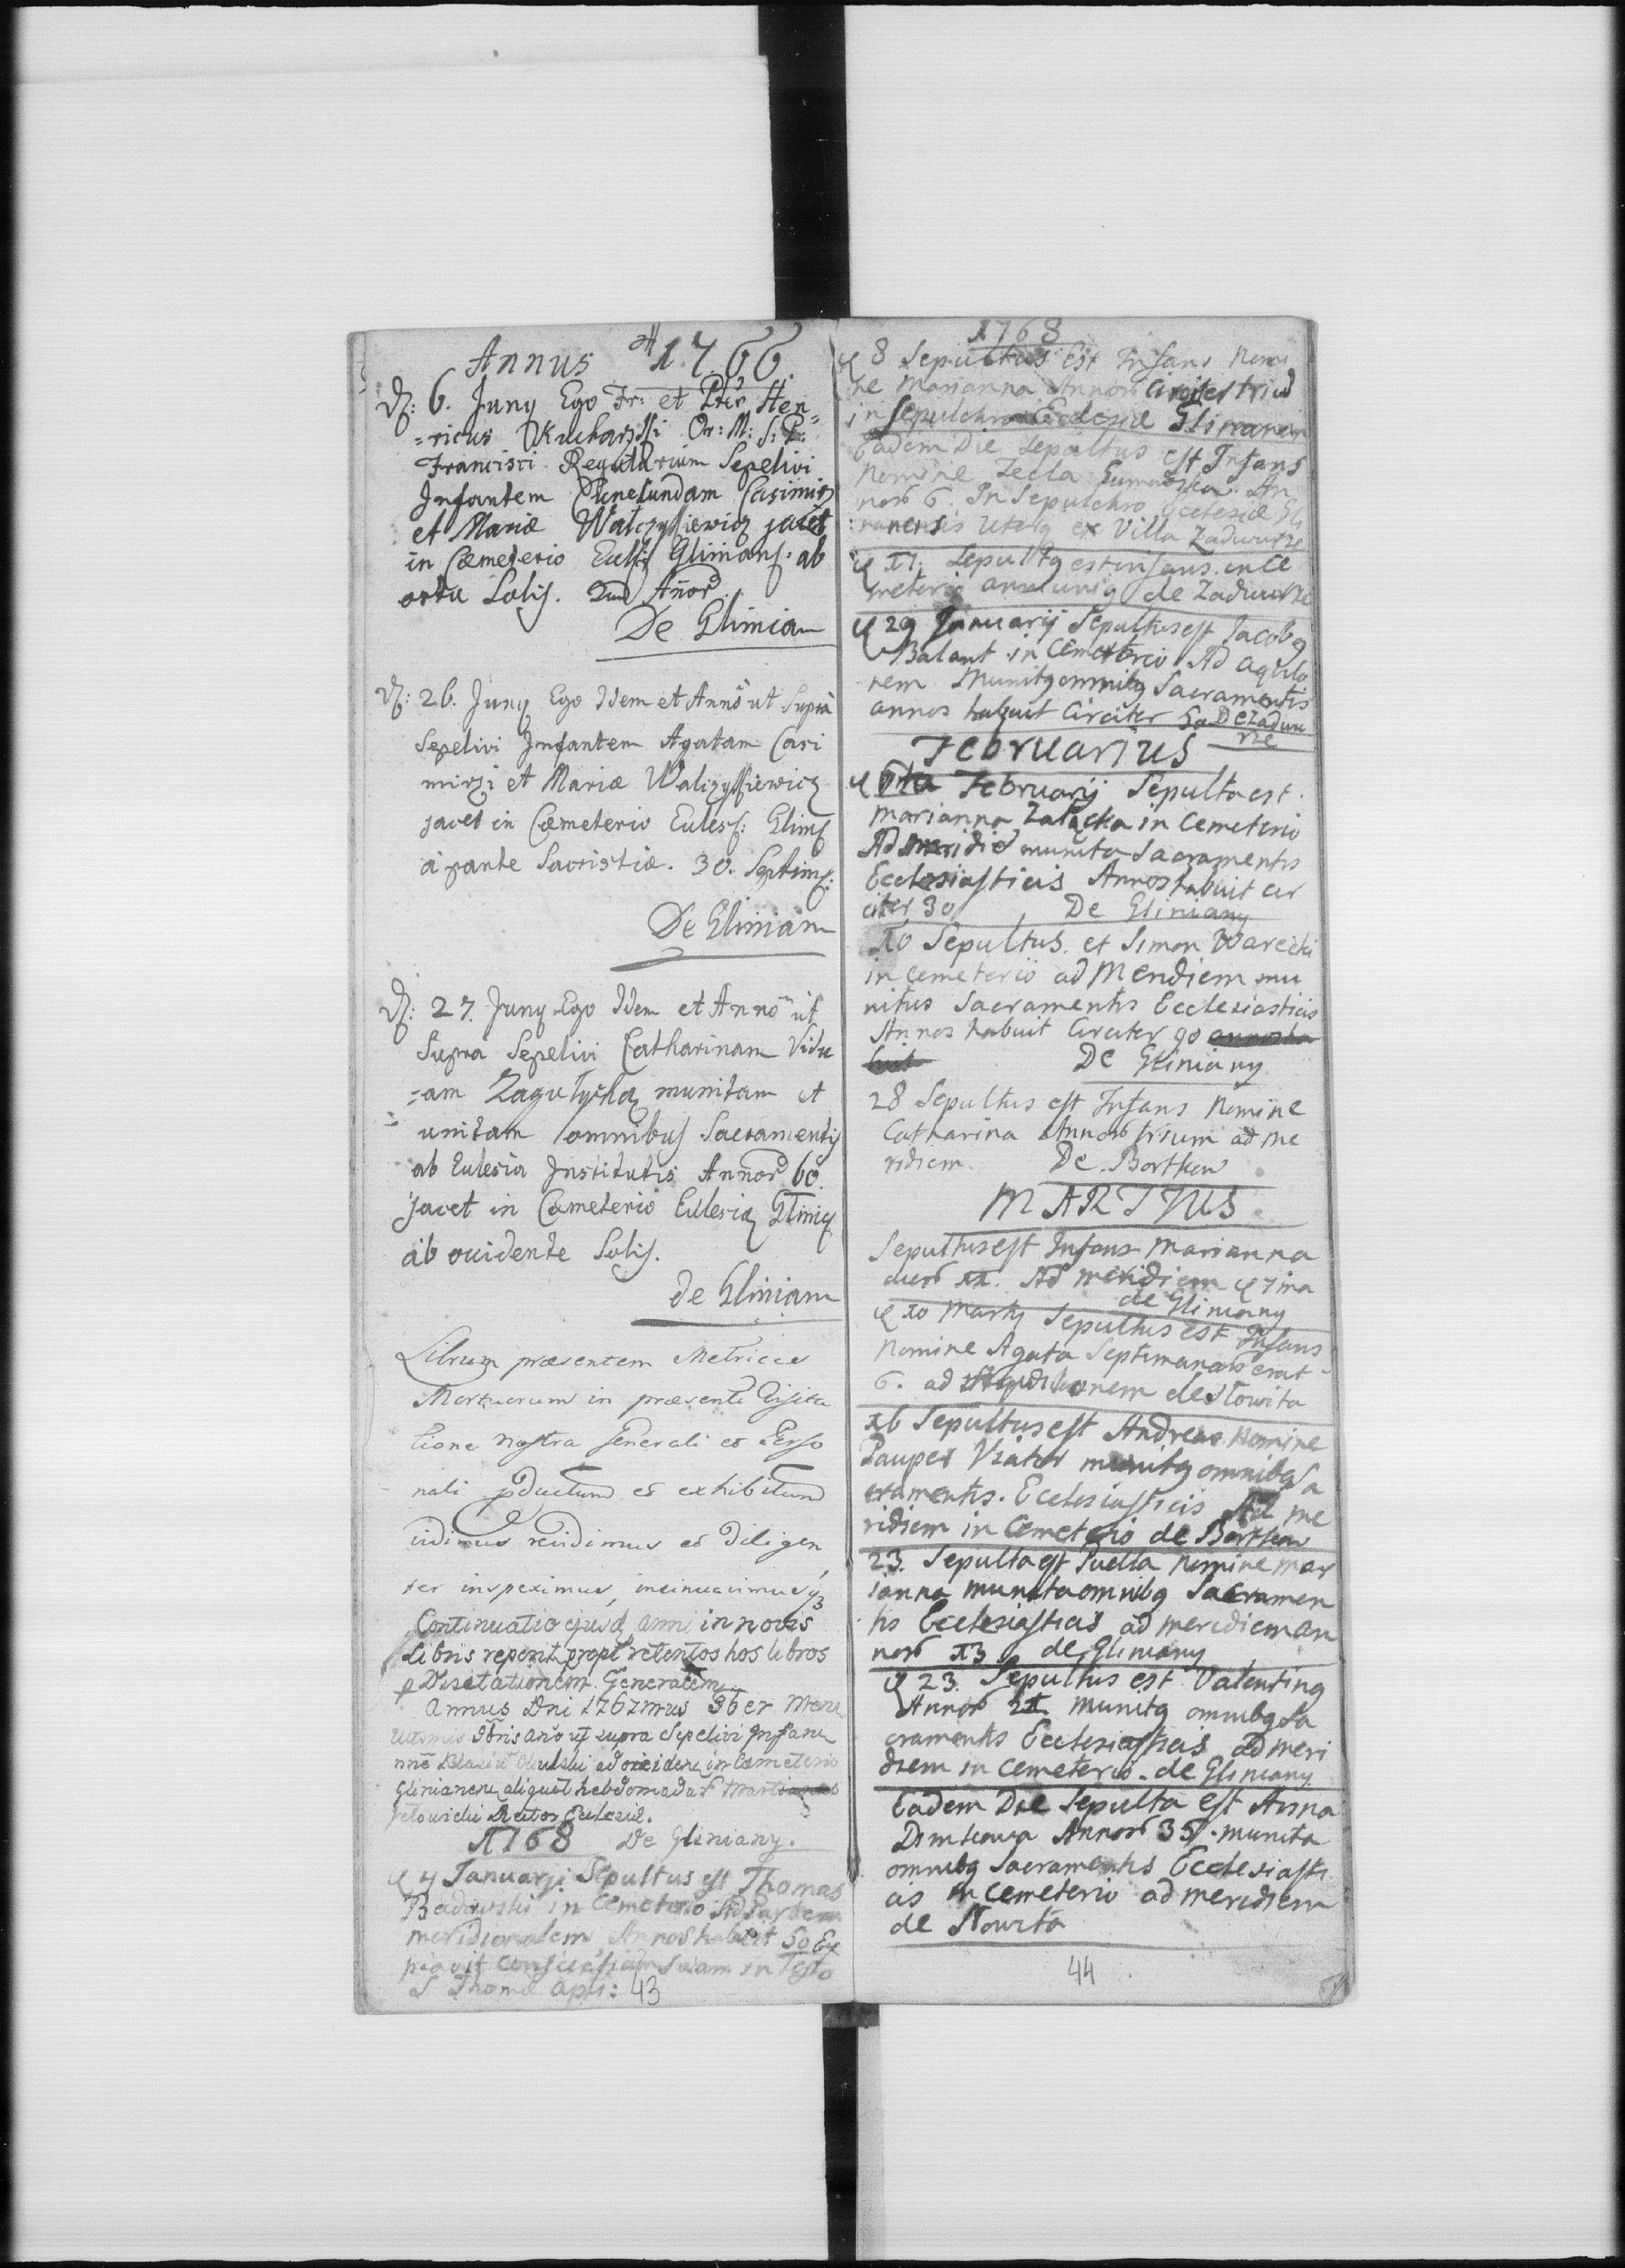 Annus 1766.
D: 6. Juny Ego Fr: et Ptër Hen=
=ricus Kucharsski Or: M: S: P:
Francisci Regularium Sepelivi
Infantem Cunecundam Casimirz
et Mariæ Walczyssiewicz jacet
in Cæmeterio Eccls: Glinians: ab
ortu Solis. Annor
De Glinian
D: 26. Juny Ego Idem et Anno ut Supra
Sepelivi Infantem Agatam Casi
mirzi et Mariæ Walczyssiewicz
jacet in Cæmeterio Ecless: Glins
à parte Sacristiæ. 30. Septim:
De Glinian
D: 27. Juny Ego Idem et Anno ut
Supra Sepelivi Catharinam Vidu
=am munitam et
unitam omnibus Sacramentis
ab Eclesia Institutis Annor 60.
Jacet in Cæmeterio Eclesiæ Glini
ab occidente Solis.
de Glinian
Librum præsentem Metricæ
Mortuorum in præsenti Visita
tione nostra Generali et Perso
nali pductum et exhibitum
vidimus revidimus et Diligen
ter inspeximus, insinuavimusq3
Continuatio ejusd anni in novis
Libris reperit propt retentos hos libros
p Visitationem Generalem
Annus Dni 1767mus
Sepelivi Infan
ad occidene in Cæmeterio
Glinianen aliquot hebdomadar
Rector Ecclesiæ.
1768 De Gliniany.
4 Januarji Sepultus est Thomas
Badowski in Cemeterio Ad Partem
meridionalem Annos habuit 50 Ex
piavit Conscientiam Suam in Festo
S Thomæ Apli: 43
1768
8 Sepultus est Infans Nomi
ne Marianna Annor Circiter triu
in Sepulchro Eclesiæ Glinianen
Eadem Die Sepultus est Infans
Nomine Tecla An
nor 6 In Sepulchro Ecclesiæ Gli
:nanensis Uterq ex Villa Zadwurze
11. Sepultq est infans in Ce
meterio anni uniq de Zadwurze
29 Januarij Sepultus est Jacobq
Balant in Cemeterio Ad aqvilo
nem Munitq omnibq Sacramentis
annos habuit Circiter 50 De Zadwu
rze
Februarius
Februarij Sepulta est
Marianna Załącka in Cemeterio
Ad meridie munita Sacramentis
Ecclesiasticis Annos habuit cir
citer 30 De Gliniany
10 Sepultus et Simon Warecki
in Cemeterio ad Meridiem mu
nitus Sacramentis Ecclesiasticis
Annos habuit Circiter 90 annos ha
buit De Gliniany
28 Sepultus est Infans Nomine
Catharina Annor trium ad me
ridiem. De Bortkow
MARTIUS
Sepultus est Infans Marianna
dier 12. Ad meridiem 7ma
de Gliniany
10 Martij Sepultus est Infans
Nomine Agata Septimanar erat
6. ad de Słowita
16 Sepultus est Andreas Nomine
Pauper Viator munitq omnibq Sa
cramentis. Ecclesiasticis Ad me
ridiem in Cemeterio de Bortkow
23. Sepulta est Puella Nomine Mar
ianna munita omnibq Sacramen
tis Ecclesiasticis ad meridiem an
nor 13 de Gliniany
23. Sepultus est Valentinq
Annor 21 munitq omnibq Sa
cramentis Ecclesiasticis ad meri
diem in Cemeterio. de Gliniany
Eadem Die Sepulta est Anna
Dmitrowa Annor 35. munita
omnibq Sacramentis Ecclesiasti
cis in Cemeterio ad meridiem
de Słowita
44